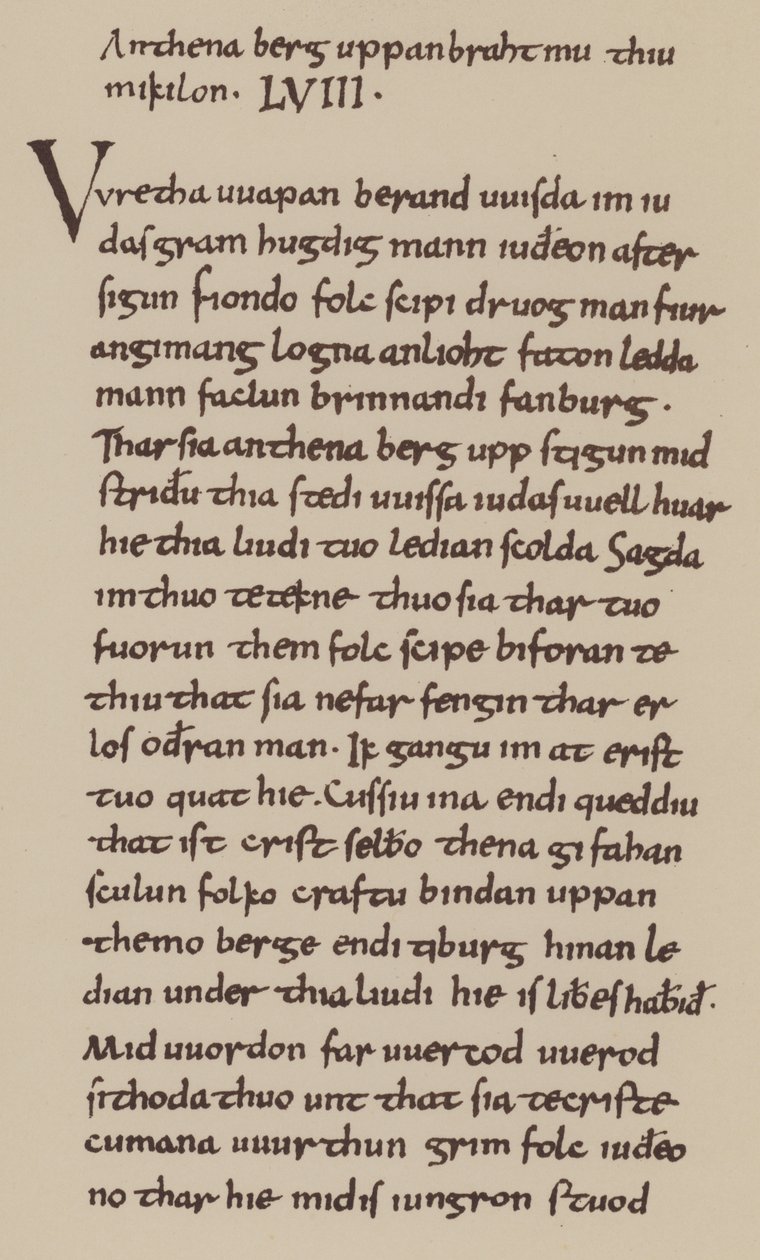 An thena berg uppan braht mu thiu
mikilon. LVIII.
Vvretha uuapan berand uuisda im iu
das gram hugdig mann iuđeon after
sigun fiondo folc scipi druog man fiur
an gimang logna an lioht faton ledda
mann faclun brinnandi fan burg.
Thar sia an thena berg upp stigun mid
striđu thia stedi uuissa iudas uuell huar
hie thia liudi tuo ledian scolda Sagda
im thuo te tekne thuo sia thar tuo
fuorun them folc scipe biforan te
thiu that sia ne far fengin thar er
los ođran man. Ik gangu im at erist
tuo quat hie. Cussiu ina endi queddiu
that ist crist selƀo thena gi fahan
sculun folko craftu bindan uppan
themo berge endi ti burg hinan le
dian under thia liudi hie is liƀes haƀid.
Mid uuordon far uuercod uuerod
sithoda thuo unt that sia te criste
cumana uuurthun grim folc iuđeo
no thar hie mid is iungron stuod